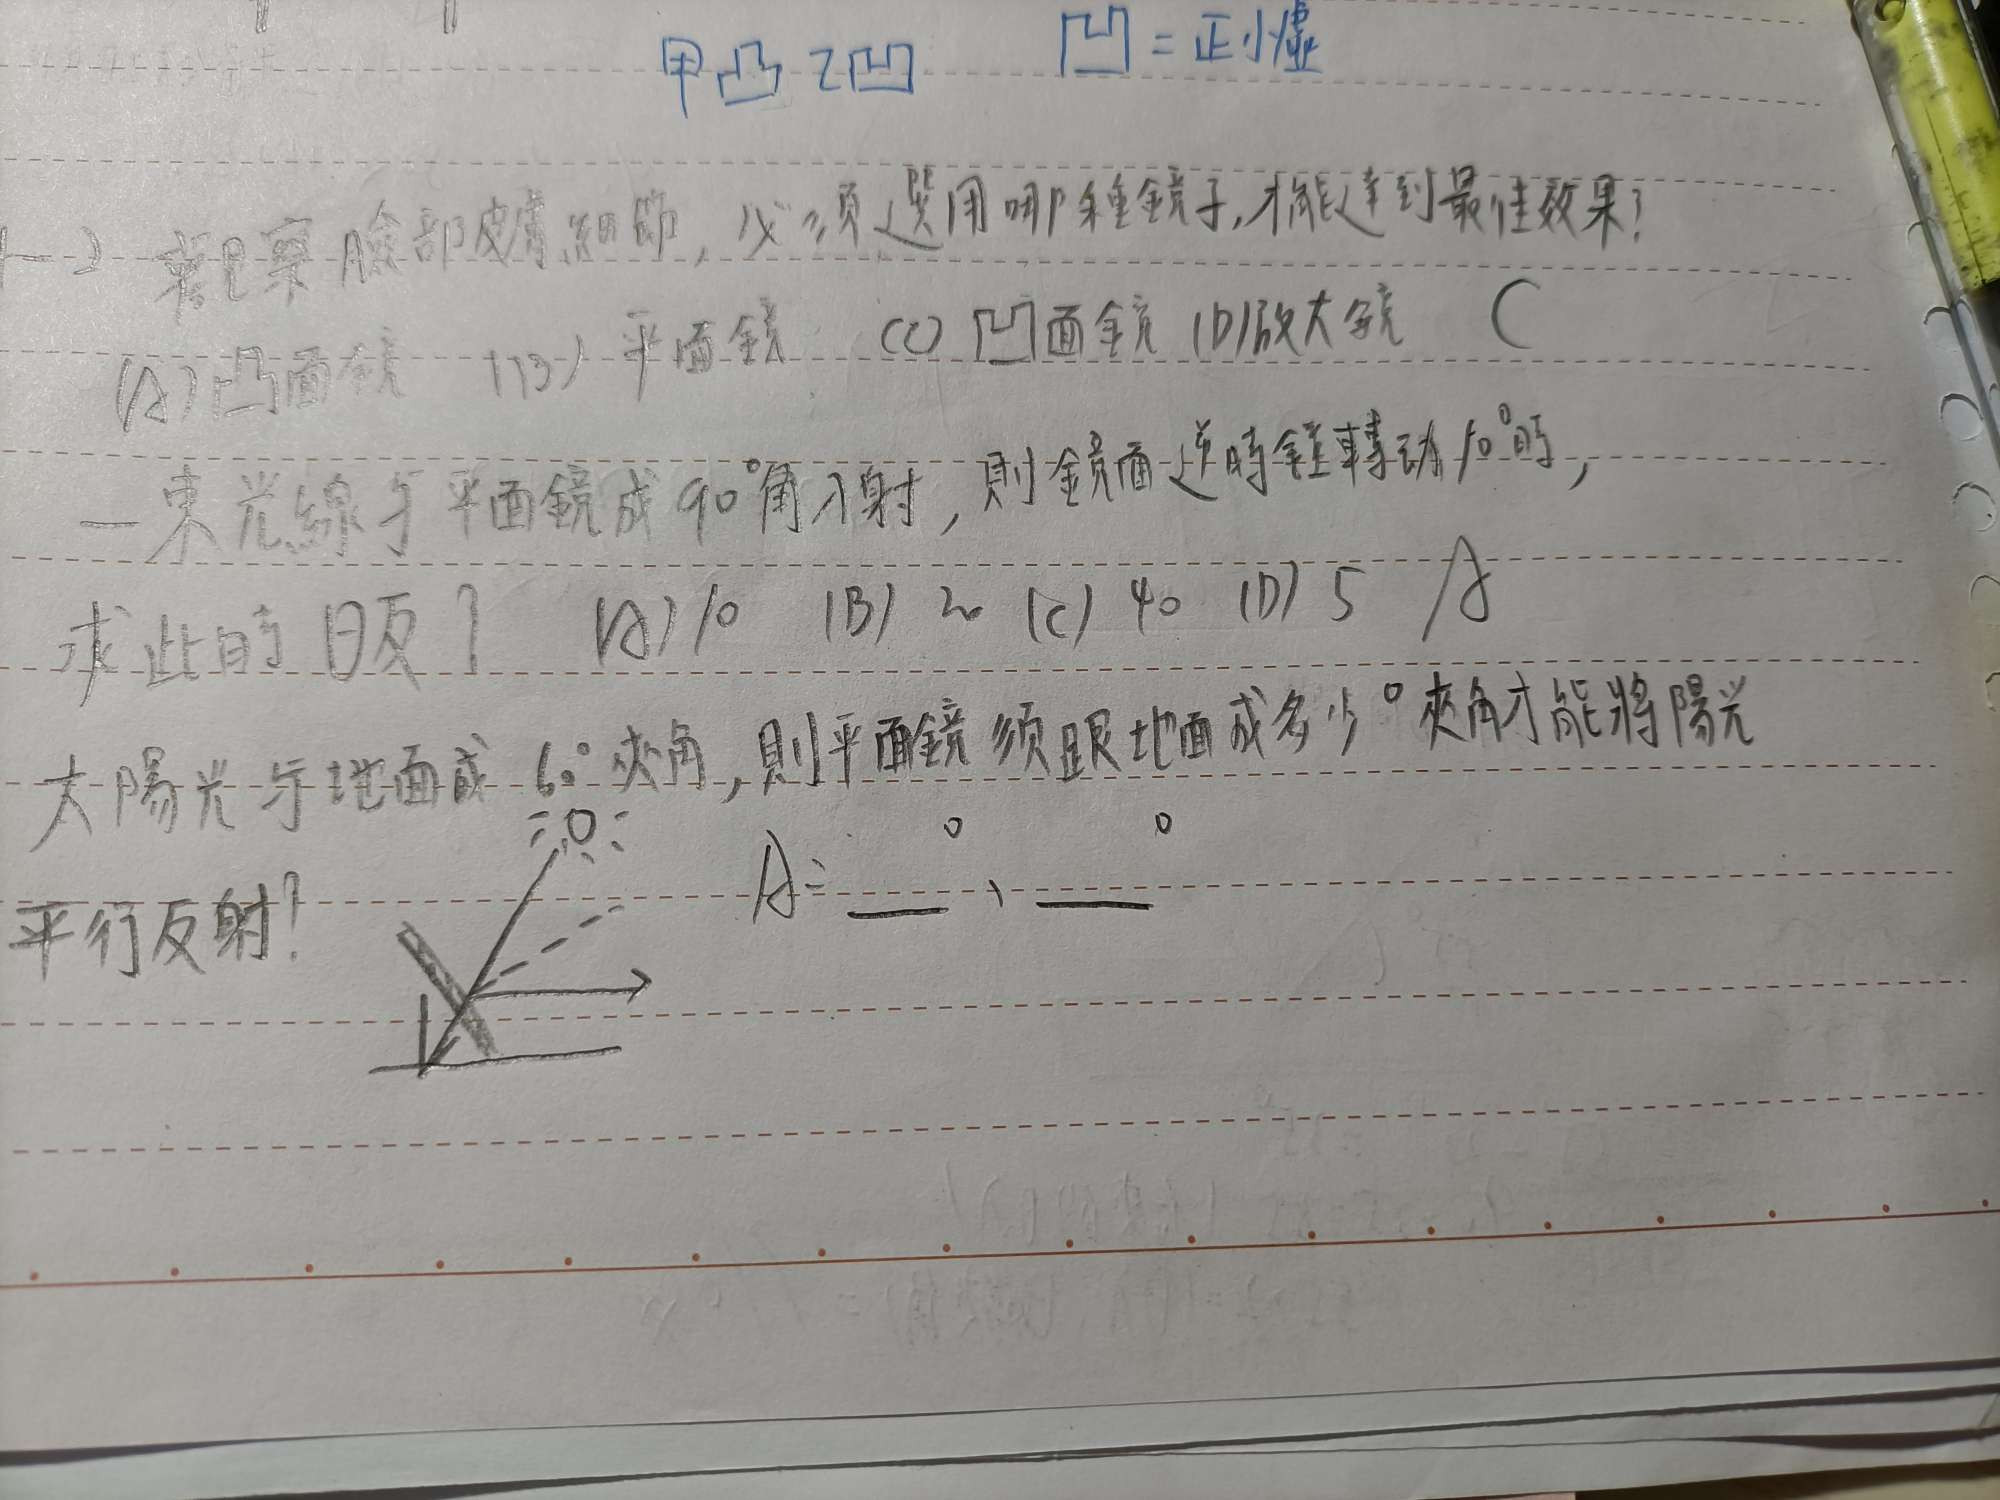 甲凸乙凹 凹=正小虛
若觀察臉部皮膚細節,必須選用哪種鏡子,才能達到最佳效果?
(A)凸面鏡 (B)平面鏡 (C)凹面鏡 (D)放大鏡 C
一束光線与平面鏡成90°角入射,則鏡面逆時鐘轉動10°時,
求此時∠反? (A)10 (B)20 (C)40 (D)5 A
太陽光与地面成60°夾角,則平面鏡須跟地面成多少°夾角才能將陽光
平行反射? A=__°、__°